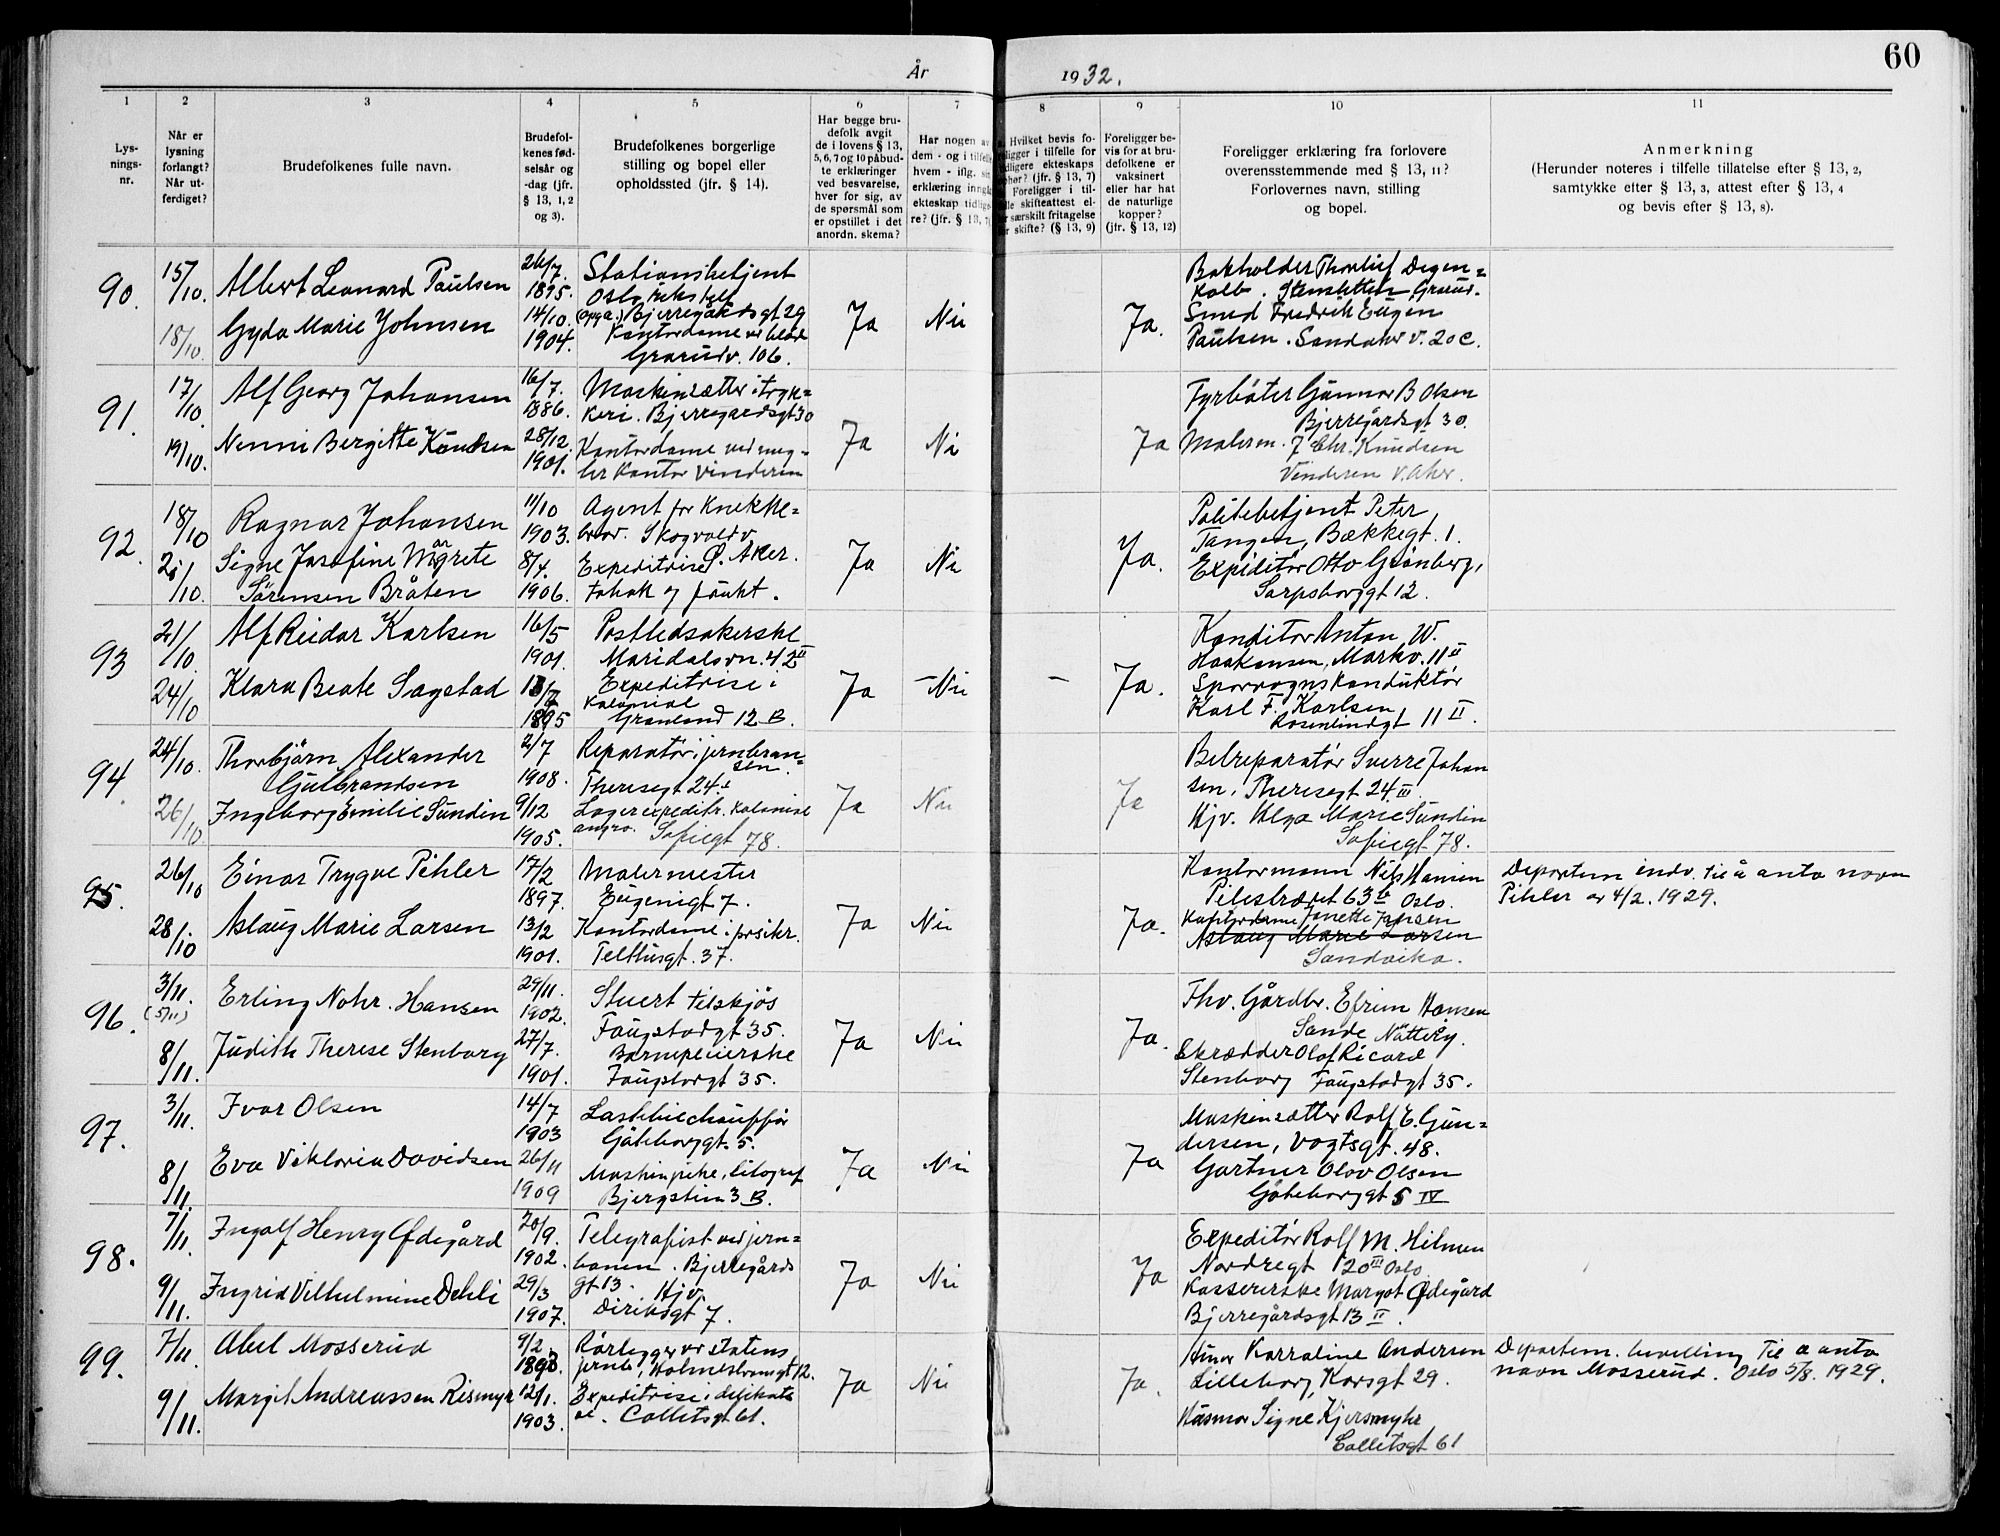 60
År 1932.
1 2 3 4 5 6 7 8 9 10 11
Lys-
nings-
nr.
Når er
lysning
forlangt?
Når ut-
ferdiget?
Brudefolkenes fulle navn.
Brudefol-
kenes fød-
selsår og
-dag (jfr.
§ 13, 1, 2
og 3).
Brudefolkenes borgerlige
stilling og bopel eller
opholdssted (jfr. § 14).
Har begge bru-
defolk avgit
de i lovens § 13,
5, 6, 7 og 10 påbud-
te erklæringer
ved besvarelse,
hver for sig, av
de spørsmål som
er opstillet i det
anordn. skema?
Har nogen av
dem - og i tilfelle
hvem - iflg. sin
erklæring inngått
ekteskap tidlige-
re? (jfr. § 13, 7)
Hvilket bevis fo-
religger i tilfelle for
tidligere ekteskaps
ophør? (jfr. § 13, 7)
Foreligger i til-
felle skifteattest el-
ler særskilt fritagelse
for skifte? (§ 13, 9)
Foreligger be-
vis for at bru-
defolkene er
vaksinert
eller har hat
de naturlige
kopper?
(jfr. § 13, 12)
Foreligger erklæring fra forlovere
overensstemmende med § 13, 11?
Forlovernes navn, stilling
og bopel.
Anmerkning
(Herunder noteres i tilfelle tillatelse efter § 13, 2,
samtykke efter § 13, 3, attest efter § 13, 4
og bevis efter § 13, 8).
90.
15/10.
18/10.
Albert Leonard Paulsen
Gyda Marie Johnsen
26/7.
1895.
14/10.
1904.
Stationsbetjent
Oslo
(opg.) Bjerregårdsgt 29
Kontordame
Grorudv. 106.
Ja
Nei
Ja.
Bokholder Thorleif Degen=
kolb. Stensletten, Grorud.
Smed Fredrik Eugen
Paulsen. Sandakerv. 20 C.
91.
17/10.
19/10.
Alf Georg Johansen
Nenni Bergitte Knudsen
16/7.
1886.
28/12.
1901.
Maskinsætter i tryk=
keri. Bjerregårdsgt 30
Kontordame ved meg=
ler kontor Vinderen
Ja
Nei
Ja
Fyrbøter Gunnar B Olsen
Bjerregårdsgt 30.
Malerm. J Chr. Knudsen
Vinderen V. Aker.
92.
18/10
21/10.
Ragnar Johansen
Signe Josefine Margrete
Sørensen Bråten
11/10
1903.
8/4.
1906.
Agent for knekke=
brød. Skogvoldv.
Ø. Aker.
Expeditrise
tobak og frukt.
Ja
Nei
Ja.
Politibetjent Peter
Tangen, Bækkegt. 1.
Expeditør Otto Grønberg,
Sarpsborggt 12.
93
21/10.
24/10
Alf Reidar Karlsen
Klara Beate Sagstad
16/5
1901.
1895
Postledsakerske
Maridalsvn. 42 II
Expeditrise i
kolonial
Grønland 12 B.
Ja
- Nei
-
Ja.
Konditor Anton W.
Haakonsen, Markv. 11 II
Sporvognskonduktør
Karl F. Karlsen
Rosenlundgt 11 II.
94.
24/10.
26/10
Thorbjørn Alexander
Gulbrandsen
Ingeborg Emilie Sundin
2/7
1908.
9/12
1905.
Reparatør i jernbran=
sen.
Theresegt 24.
Lagerexpeditr. kolonial
angro. Sofiegt 78.
Ja
Nei
Ja
Bilreparatør Sverre Johan
sen, Theresegt 24 III.
Hjv. Olga Marie Sundin
Sofiegt 78.
95.
26/10
28/10
Einar Trygve Pihler
Aslaug Marie Larsen
17/2
1897.
13/2
1901.
Malermester
Eugeniegt 7.
Kontordame i forsikr.
Telthusgt. 37.
Ja
Nei
Ja.
Kontormann Nils Hansen
Pilestrædet 63 b Oslo.
Kontordame Janette Jansen
Aslaug Marie Larsen
Sandvika.
Departem indv. til å anta navn
Pihler av 4/2. 1929.
96.
3/11.
(5/11)
8/11.
Erling Nohr. Hansen
Judith Therese Stenborg
29/11.
1902.
27/7.
1901.
Stuert tilskjøs
Faugstadgt 35.
Barnepleierske
Faugstadgt 35.
Ja
Nei
Ja.
Fhv. Gårdbr. Efrim Hansen
Sande Nøtterø.
Skrædder Olof Ricard
Stenborg Faugstadgt 35.
97.
3/11.
8/11.
Ivar Olsen
Eva Viktoria Davidsen
14/7
1903
26/11
1909
Lastebilchauffør
Gøteborggt. 5.
Maskinpike, litograf
Bjergstien 3 B.
Ja
Nei
Ja
Maskinsætter Rolf E. Gun=
dersen, Vogtsgt. 48.
Gartner Olov Olsen
Gøteborggt 5 IV
98.
7/11.
9/11.
Ingolf Henry Ødegård
Ingrid Vilhelmine Dehli
20/9.
1902.
29/3
1907.
Telegrafist ved jern=
banen. Bjerregårds
gt 13. Hjv.
Diriksgt 7.
Ja
Nei
Ja
Expeditør Rolf M. Hilmen
Nordregt 20 III Oslo
Kassererske Margot Ødegård
Bjerregårdsgt 13 II.
99.
7/11.
9/11.
Abel Mosserud
Margit Andreassen Rismyr
9/2.
1893.
12/1.
1903.
Rørlegger ved statens
jernb., Holmestrandgt 12.
Expeditrise i delikate
se. Colletsgt 61.
Ja
Nei
Ja.
Karraline Andersen
Lilleborg, Korsgt 29.
Husmor Signe Kjersmyhr
Colletsgt 61
Departem. bevilling til å anta
navn Mosserud. Oslo 5/8. 1929.